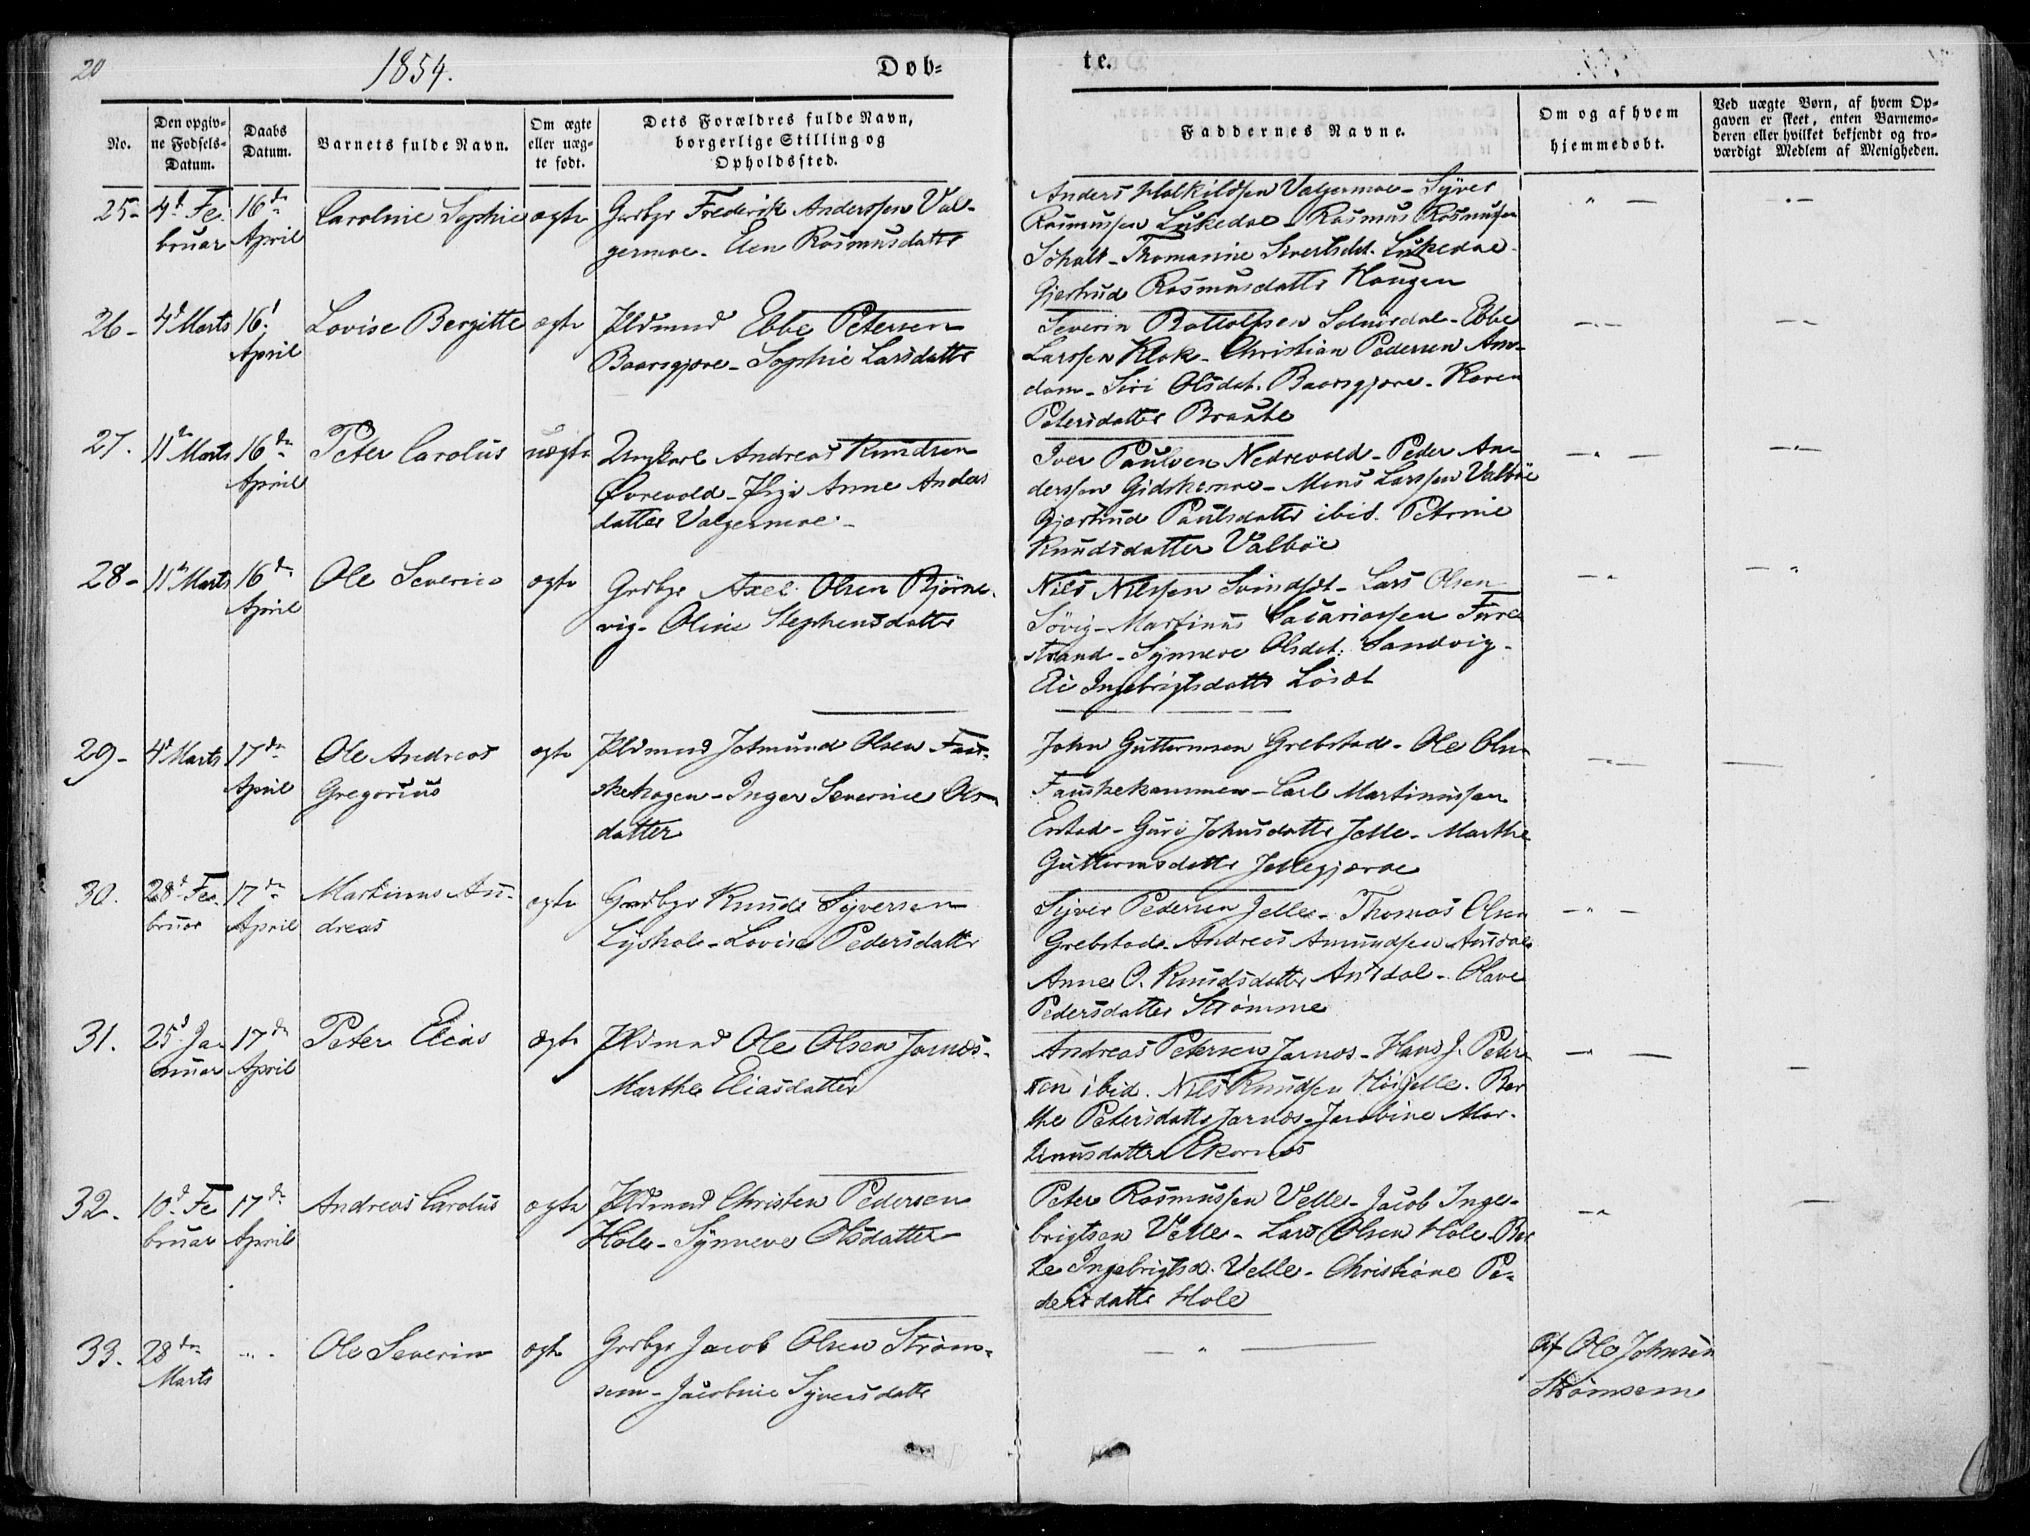 20
1854.
Døb=
te.
No.
Den opgiv=
ne Fødsels=
Datum.
Daabs
Datum.
Barnets fulde Navn.
Om ægte
eller uæg=
te født.
Dets Forældres fulde Navn,
borgerlige Stilling og
Opholdssted.
Faddernes Navne.
Om og af hvem
hjemmedøbt.
Ved uægte Børn, af hvem Op=
gaven er skeet, enten Barnemo=
deren eller hvilket bekjendt og tro=
værdigt Medlem af Menigheden.
25-
4d Fe
bruar
16de
April
Caroline Sophie
ægte
Grdbgr Frederik Anderssen Val-
germoe. Elen Rasmusdatter
Anders Holkildsen Valgermoe - Syver
Rasmussen Lukedal - Rasmus Rasmussen
Scholt - Thomanine Sivertsdt. Lukedal
Gjertrud Rasmusdatter Haugen
26-
4d Marts
16d
April
Lovise Bergitte
ægte
Pldsmand Ebbe Petersen
Baarsgjøre - Sophie Larsdatter
Severin Bottolfsen Solnørdal - Ebbe
Larssen Klok - Christian Pedersen Am-
dam - Siri Olsdat. Baarsgjøre - Karen
Petersdatter Braute
27.
11de Marts
16de
April
Peter Carolus
uægte
Ungkarl Andreas Knudsen
Øvrevold - Pige Anne Anders
datter Valgermoe -
Iver Paulsen Nedrevold - Peder An-
derssen Gidskemoe - Mons Larssen Valbøe
Gjertrud Paulsdatter ibid. Petrine
Knudsdatter Valbøe
28-
11de Marts
16de
April
Ole Severin
ægte
Grdbgr Axel Olsen Bjørne-
vig - Oline Stephensdatter
Nils Nilssen Svindset - Lars Olsen
Søvig - Martinus Sacariassen Furre
strand - Synneve Olsdt. Sandvig -
Eli Ingebrigtsdatter Løset
29-
4d Marts
17de
April
Ole Andreas
Gregorius
ægte
Pldsmand Jetmund Olsen Fau-
skehagen - Inger Severine Ols-
datter
John Guttormsen Grebstad - Ole Olsen
Fauskekammen - Carl Martinussen
Erstad - Guri Johnsdatter Jelle - Marthe
Guttormsdatter Jellegjærde
30.
28d Fe
bruar
17de
April
Martinus An-
dreas
ægte
Grdbgr Knud Syversen
Lyshol - Lovise Pedersdatter
Syver Pedersen Jelle - Thomas Olsen
Grebstad - Andreas Amundsen Aursdal
Anne O. Knudsdatter Aursdal - Olave
Pedersdatter Strømme
31.
25d Ja
nuar
17de
April
Peter Elias
ægte
Pldsmand Ole Olsen Jarnæs-
Marthe Eliasdatter
Andreas Petersen Jarnæs - Hans J. Peter-
sen ibid. Nils Knudsen Høijelle. Ber
the Petersdatter Jarnæs - Jacobine Mar-
tinusdatter Ekornæs
32-
10d Fe
bruar
17de
April
Andreas Carolus
ægte
Pldsmand Christen Pedersen
Hole - Synneve Olsdatter
Peter Rasmussen Velle - Jacob Inge-
brigtsen Velle - Lars Olsen Hole - Ber
te Ingebrigtsd. Velle - Christiane Pe-
dersdatter Hole
33.
28de
Marts
" -
Ole Severin
ægte
Grdbgr Jacob Olsen Strøm-
sem - Jacobine Syversdatter
— " —
Af Ole Johnsen
Strømsem